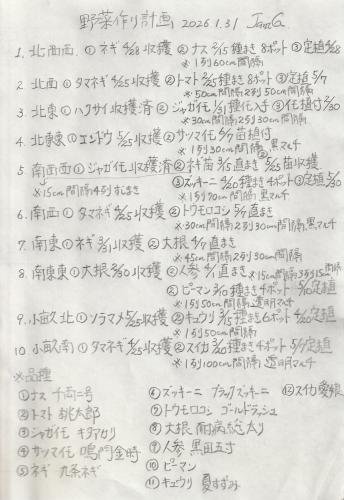 野菜作り計画 2026.1.31 JunG.
1. 北西西 ① ネギ 4/28 収穫 ② ナス 3/15 種まき 8ポット ③ 定植 4/28
※1列60cm間隔
2. 北西 ① タマネギ 4/25 収穫 ② トマト 3/15 種まき 8ポット ③ 定植 5/7
※50cm間隔2列50cm間隔
3. 北東 ① ハクサイ収穫済 ② ジャガイモ 3/1 種仕入 ③ 植付 2/30
※30cm間隔2列30cm間隔
4. 北東東 ① エンドウ 5/25 収穫 ② サツマイモ 6/7 苗植付
※1列30cm間隔 黒マルチ
5 南西西 ① ジャガイモ収穫済 ② ネギ苗 3/5 直まき 5/25 苗収穫
※15cm間隔4列すじまき ③ ズッキーニ 4/20 種まき 4ポット ③ 定植 5/30
※1列70cm間隔 黒マルチ
6. 南西 ① タマネギ 4/25 収穫 ② トウモロコシ 5/7 直まき
※30cm間隔2列30cm間隔 黒マルチ
7. 南東 ① ネギ 3/1 収穫 ② 大根 4/1 直まき
※45cm間隔2列30cm間隔
8. 南東東 ① 大根 3/20 収穫 ② 人参 4/1 直まき ※15cm間隔3列15cm間隔
② ピーマン 3/15 種まき 4ポット 5/10 定植
※1列50cm間隔 透明マルチ
9. 小畝北 ① ソラマメ 5/25 収穫 ② キュウリ 3/15 種まき 6ポット 4/20 定植
※1列50cm間隔
10. 小畝南 ① タマネギ 4/25 収穫 ② スイカ 3/20 種まき 4ポット 5/7 定植
※1列100cm間隔 透明マルチ
※品種
① ナス 千両二号
② トマト 桃太郎
③ ジャガイモ キタアカリ
④ サツマイモ 鳴門金時
⑤ ネギ 九条ネギ
⑥ ズッキーニ ブラックズッキーニ
⑦ トウモロコシ ゴールドラッシュ
⑧ 大根 耐病総太り
⑨ 人参 黒田五寸
⑩ ピーマン
⑪ キュウリ 夏すずみ
⑫ スイカ 愛娘